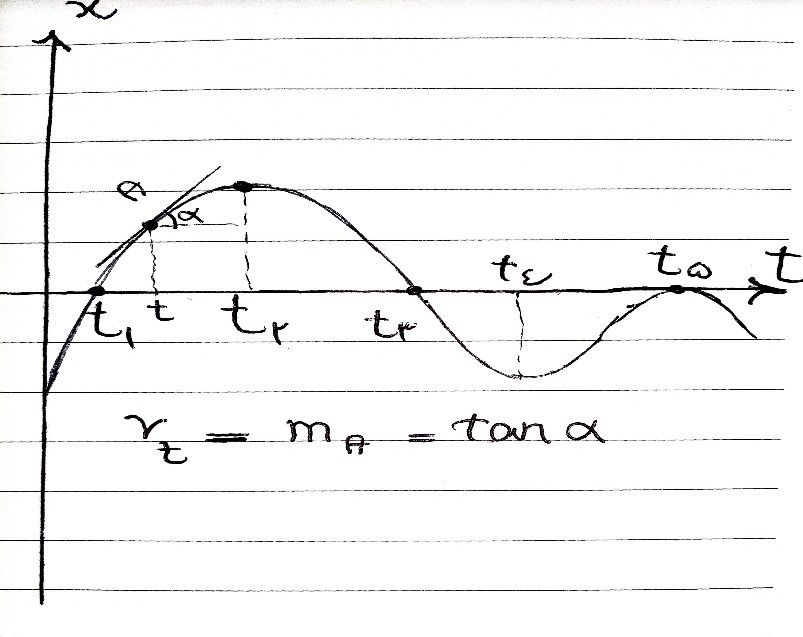 x
A
α
t₁ t t₂ t₃ t₄ t₅ t
v_t = m_A = tan α